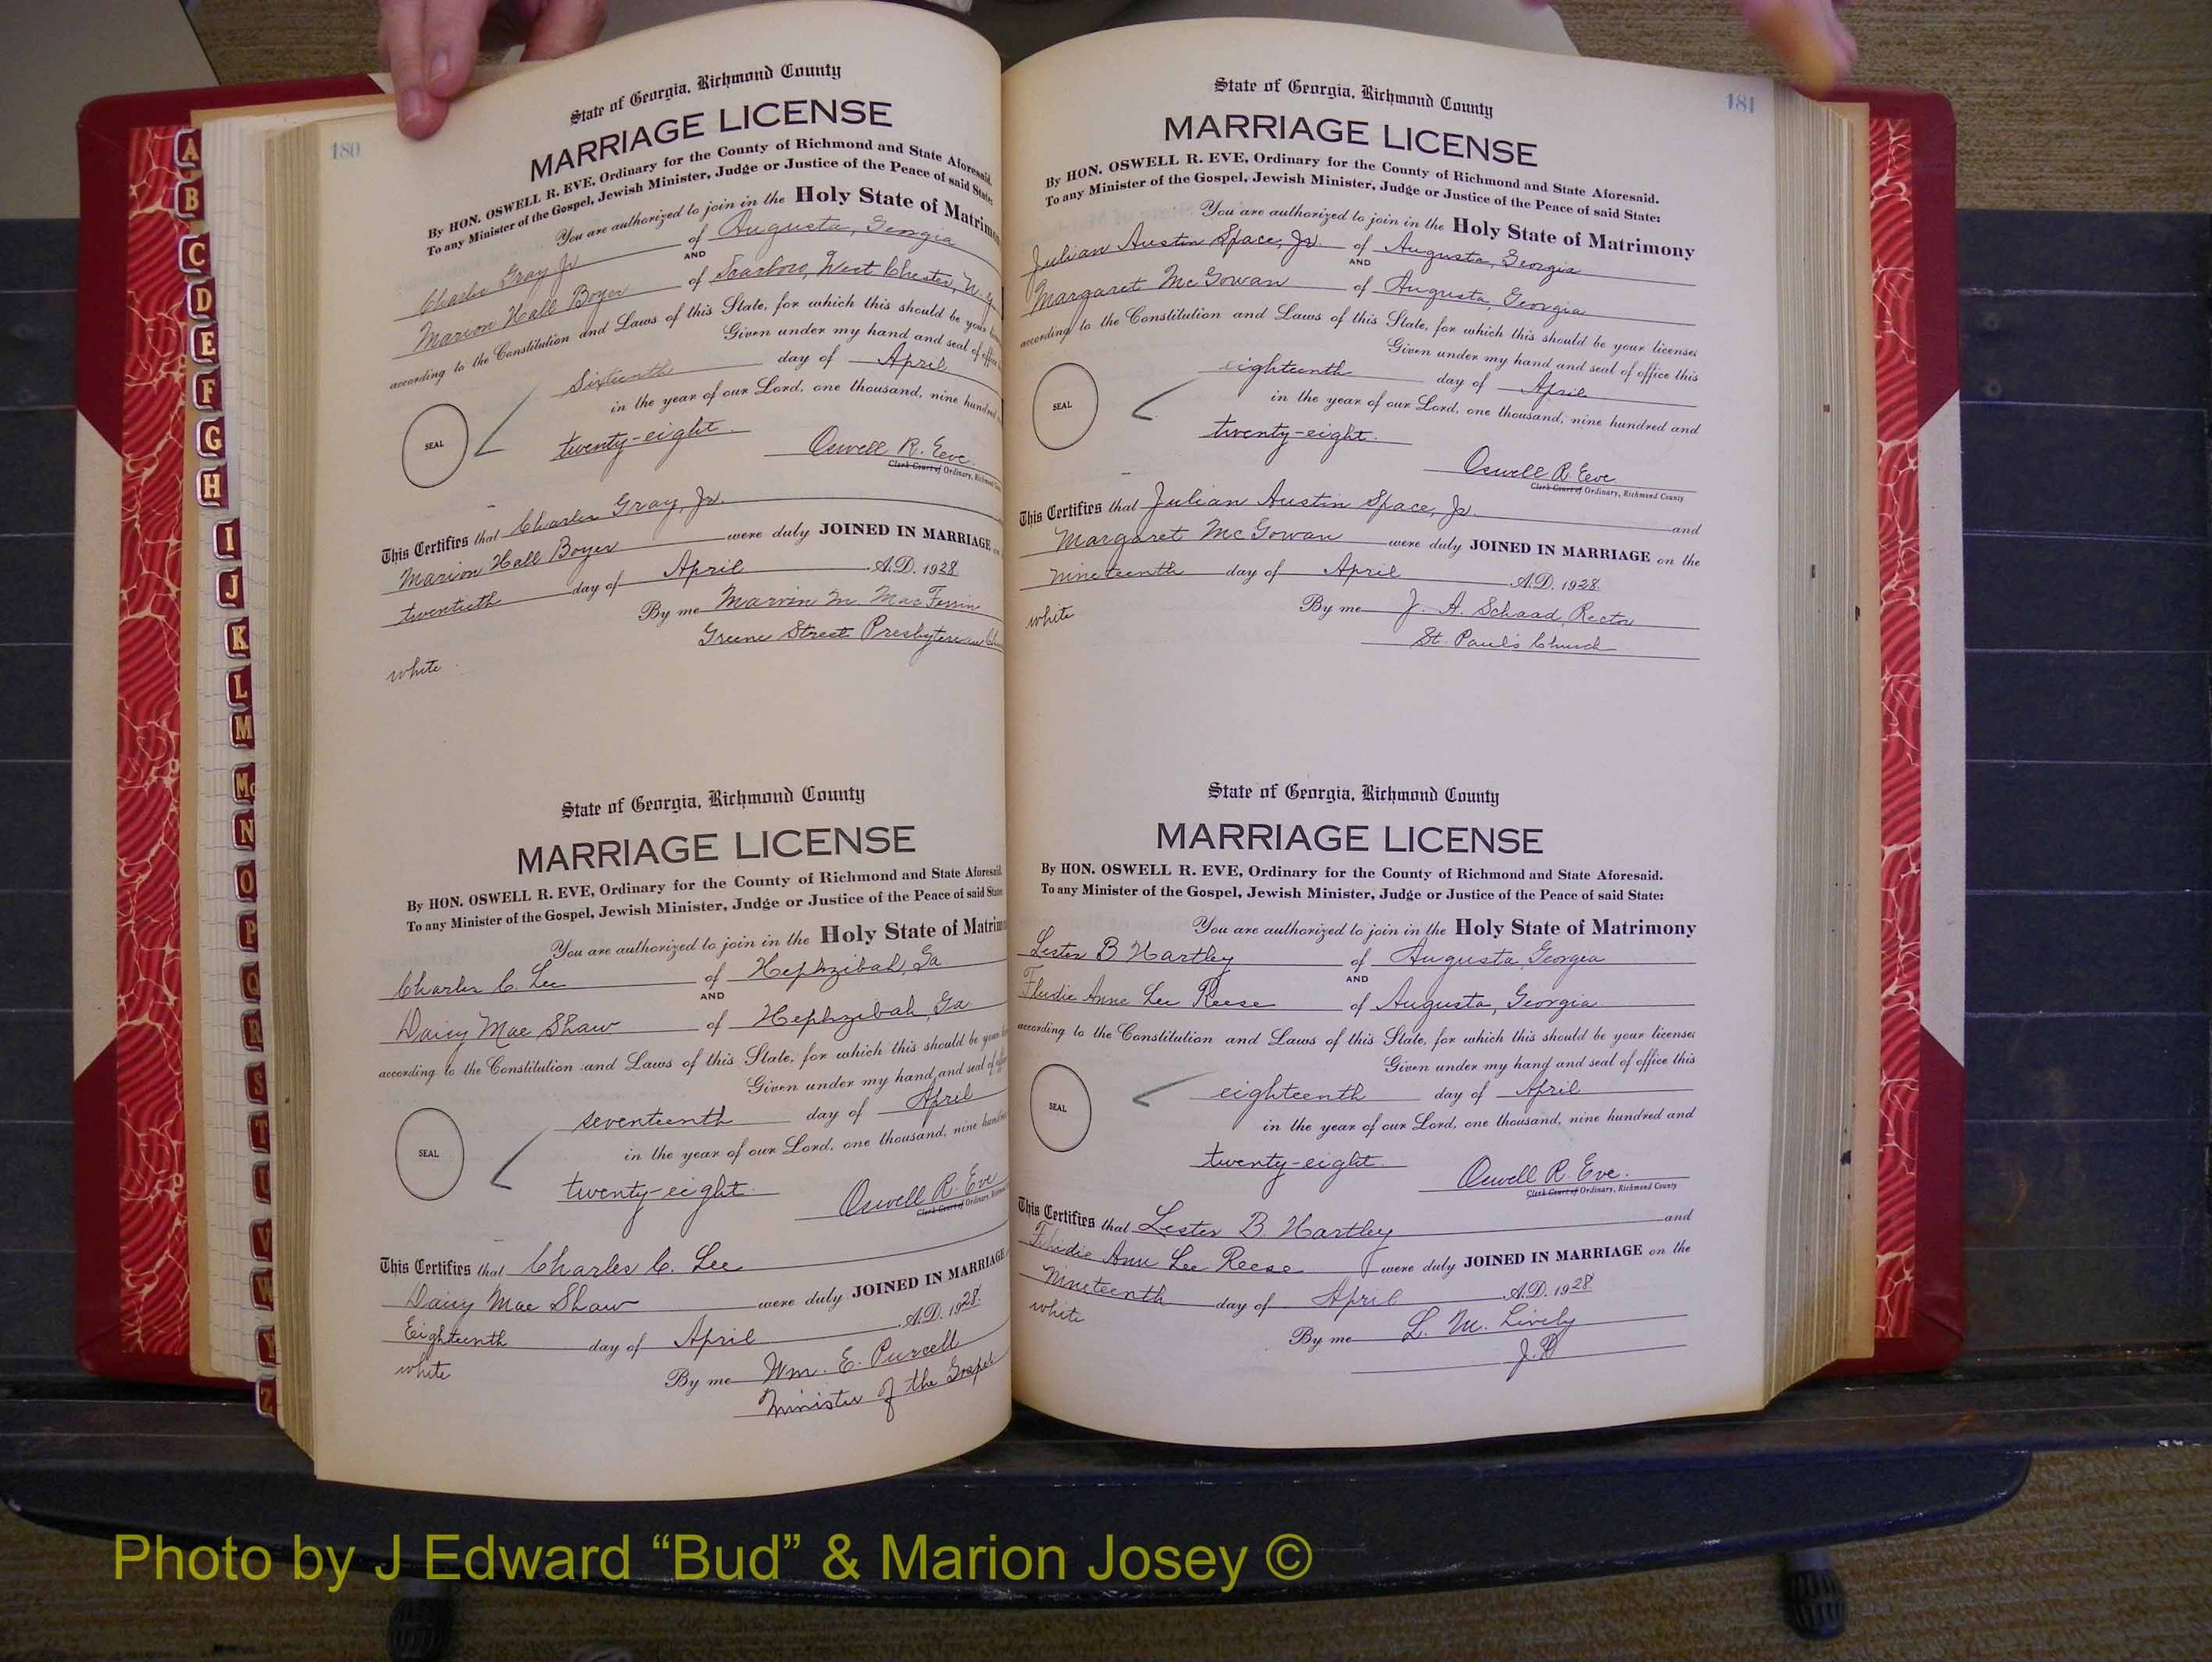 180
State of Georgia, Richmond County
MARRIAGE LICENSE
By HON. OSWELL R. EVE, Ordinary for the County of Richmond and State Aforesaid.
To any Minister of the Gospel, Jewish Minister, Judge or Justice of the Peace of said State:
You are authorized to join in the Holy State of Matrimo
Charlie Gray Jr of Augusta, Georgia
AND
Marion Hall Boyer of West Chester, N.Y
according to the Constitution and Laws of this State, for which this should be your
Given under my hand and seal of office
Sixteenth day of April
in the year of our Lord, one thousand, nine hundred
SEAL
twenty-eight.
Oswell R. Eve
Clerk Court of Ordinary, Richmond County
This Certifies that Charles Gray, Jr.
Marion Hall Boyer were duly JOINED IN MARRIAGE
twentieth day of April A.D. 1928
By me Marvin M. MacFerrin
Greene Street Presbyterian
white
State of Georgia, Richmond County
MARRIAGE LICENSE
By HON. OSWELL R. EVE, Ordinary for the County of Richmond and State Aforesaid.
To any Minister of the Gospel, Jewish Minister, Judge or Justice of the Peace of said State
You are authorized to join in the Holy State of Matrim
Charles C. Lee of Hephzibah, Ga
AND
Daisy Mae Shaw of Hephzibah, Ga
according to the Constitution and Laws of this State, for which this should be your
Given under my hand and seal of
seventeenth day of April
in the year of our Lord, one thousand, nine hundred
SEAL
twenty-eight.
Oswell R. Eve
Clerk Court of Ordinary,
This Certifies that Charles C. Lee
Daisy Mae Shaw were duly JOINED IN MARRIAGE
Eighteenth day of April A.D. 1928
white
By me Wm. E. Purcell
Minister of the Gospel
181
State of Georgia, Richmond County
MARRIAGE LICENSE
By HON. OSWELL R. EVE, Ordinary for the County of Richmond and State Aforesaid.
To any Minister of the Gospel, Jewish Minister, Judge or Justice of the Peace of said State:
You are authorized to join in the Holy State of Matrimony
Julian Austin Space, Jr. of Augusta, Georgia
AND
Margaret McGowan of Augusta, Georgia
according to the Constitution and Laws of this State, for which this should be your licenses
Given under my hand and seal of office this
eighteenth day of April
in the year of our Lord, one thousand, nine hundred and
SEAL
twenty-eight.
Oswell R. Eve
Clerk Court of Ordinary, Richmond County
This Certifies that Julian Austin Space, Jr. and
Margaret McGowan were duly JOINED IN MARRIAGE on the
nineteenth day of April A.D. 1928.
white
By me J. A. Schaad, Rector
St. Paul's Church
State of Georgia, Richmond County
MARRIAGE LICENSE
By HON. OSWELL R. EVE, Ordinary for the County of Richmond and State Aforesaid.
To any Minister of the Gospel, Jewish Minister, Judge or Justice of the Peace of said State:
You are authorized to join in the Holy State of Matrimony
Lester B Hartley of Augusta, Georgia
AND
Anne Lee Reese of Augusta, Georgia
according to the Constitution and Laws of this State, for which this should be your licenses
Given under my hand and seal of office this
eighteenth day of April
in the year of our Lord, one thousand, nine hundred and
SEAL
twenty-eight.
Oswell R. Eve.
Clerk Court of Ordinary, Richmond County
This Certifies that Lester B. Hartley and
Ann Lee Reese were duly JOINED IN MARRIAGE on the
Nineteenth day of April A.D. 1928
white
By me L. M. Lively
J.P.
A
B
C
D
E
F
G
H
I
J
K
L
M
Mc
N
O
P
Q
R
S
T
V
W
Y
Z
Photo by J Edward “Bud” & Marion Josey ©